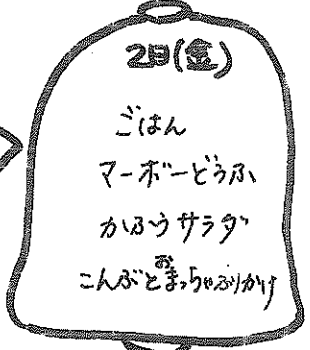 2日(金)
ごはん
マーボーどうふ
かふうサラダ
こんぶとおまっちゃふりかけ